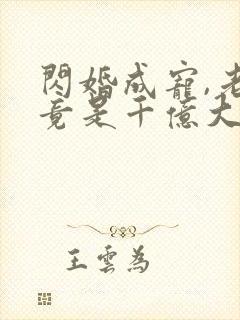 閃婚成寵,老
竟是千億大
王雲為